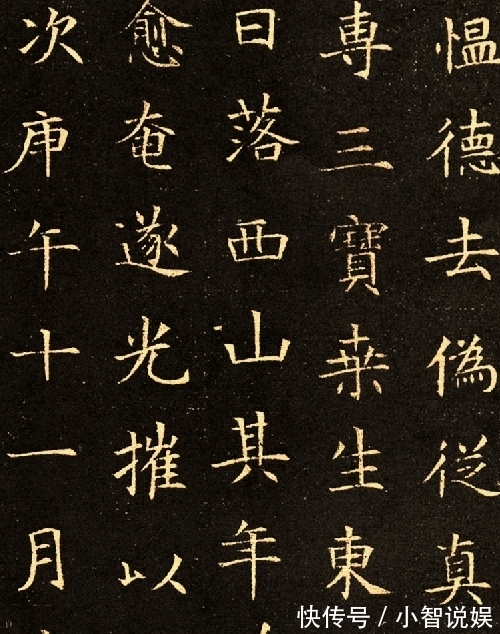 愠德去偽從真
専三寶桒生東
日落西山其年
愈奄遂光摧以
次庚午十一月
快传号 / 小智说娱